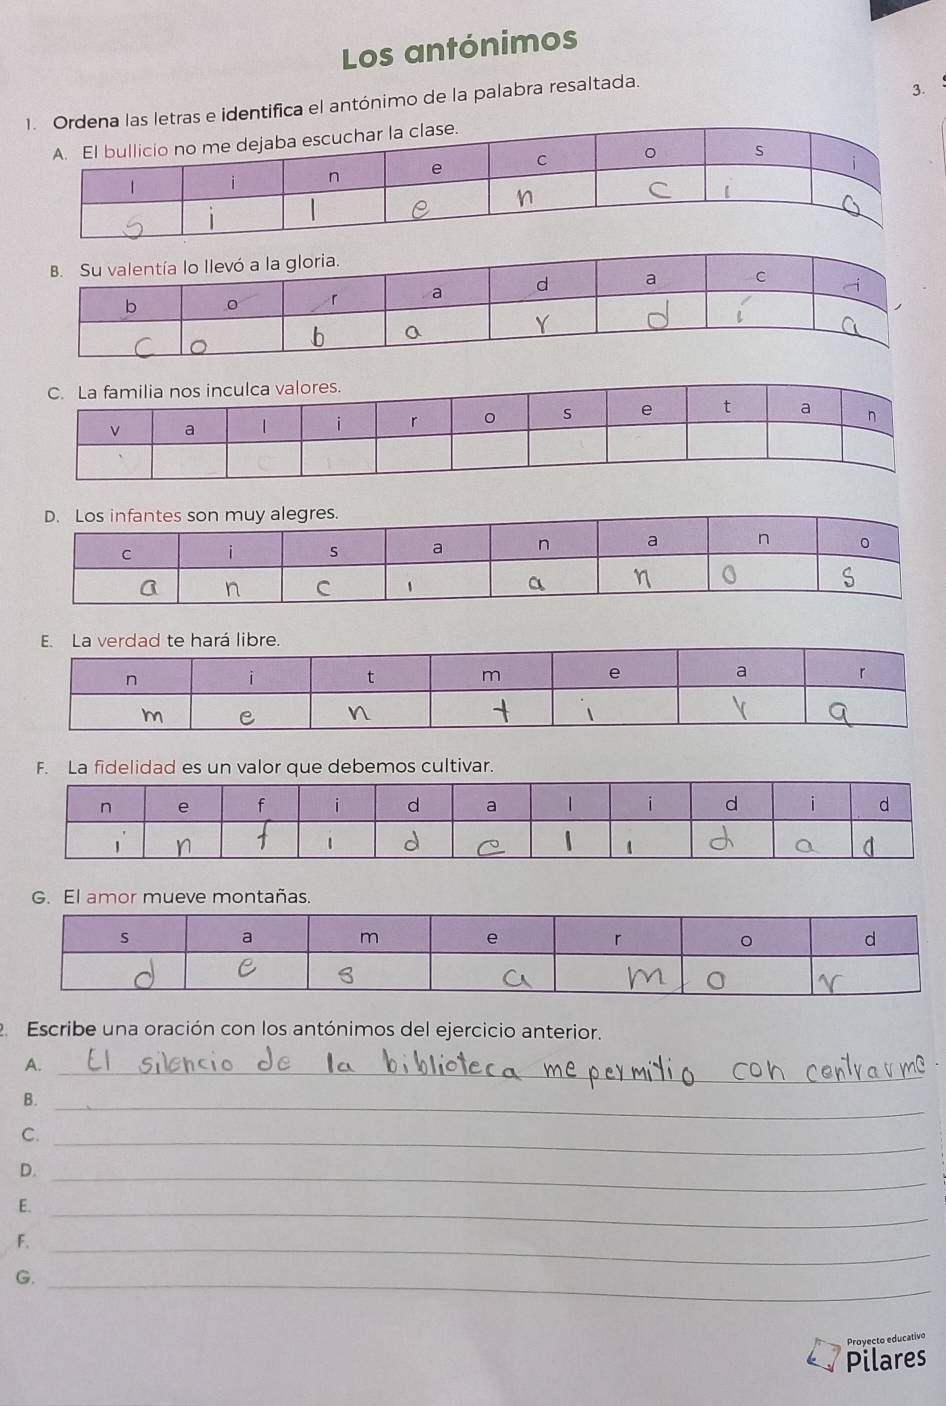 Los antónimos
1. Ordena las letras e identifica el antónimo de la palabra resaltada.
3.
A. El bullicio no me dejaba escuchar la clase.
l i n e c o s i
s i l e n c i o
B. Su valentía lo llevó a la gloria.
b o r a d a c i
c o b a r d i a
C. La familia nos inculca valores.
v a l i r o s e t a n
D. Los infantes son muy alegres.
c i s a n a n o
a n c i a n o s
E. La verdad te hará libre.
n i t m e a r
m e n t i r a
F. La fidelidad es un valor que debemos cultivar.
n e f i d a l i d i d
i n f i d e l i d a d
G. El amor mueve montañas.
s a m e r o d
d e s a m o r
2. Escribe una oración con los antónimos del ejercicio anterior.
A. El silencio de la biblioteca me permitio con centrarme.
B.
C.
D.
E.
F.
G.
Proyecto educativo
Pilares